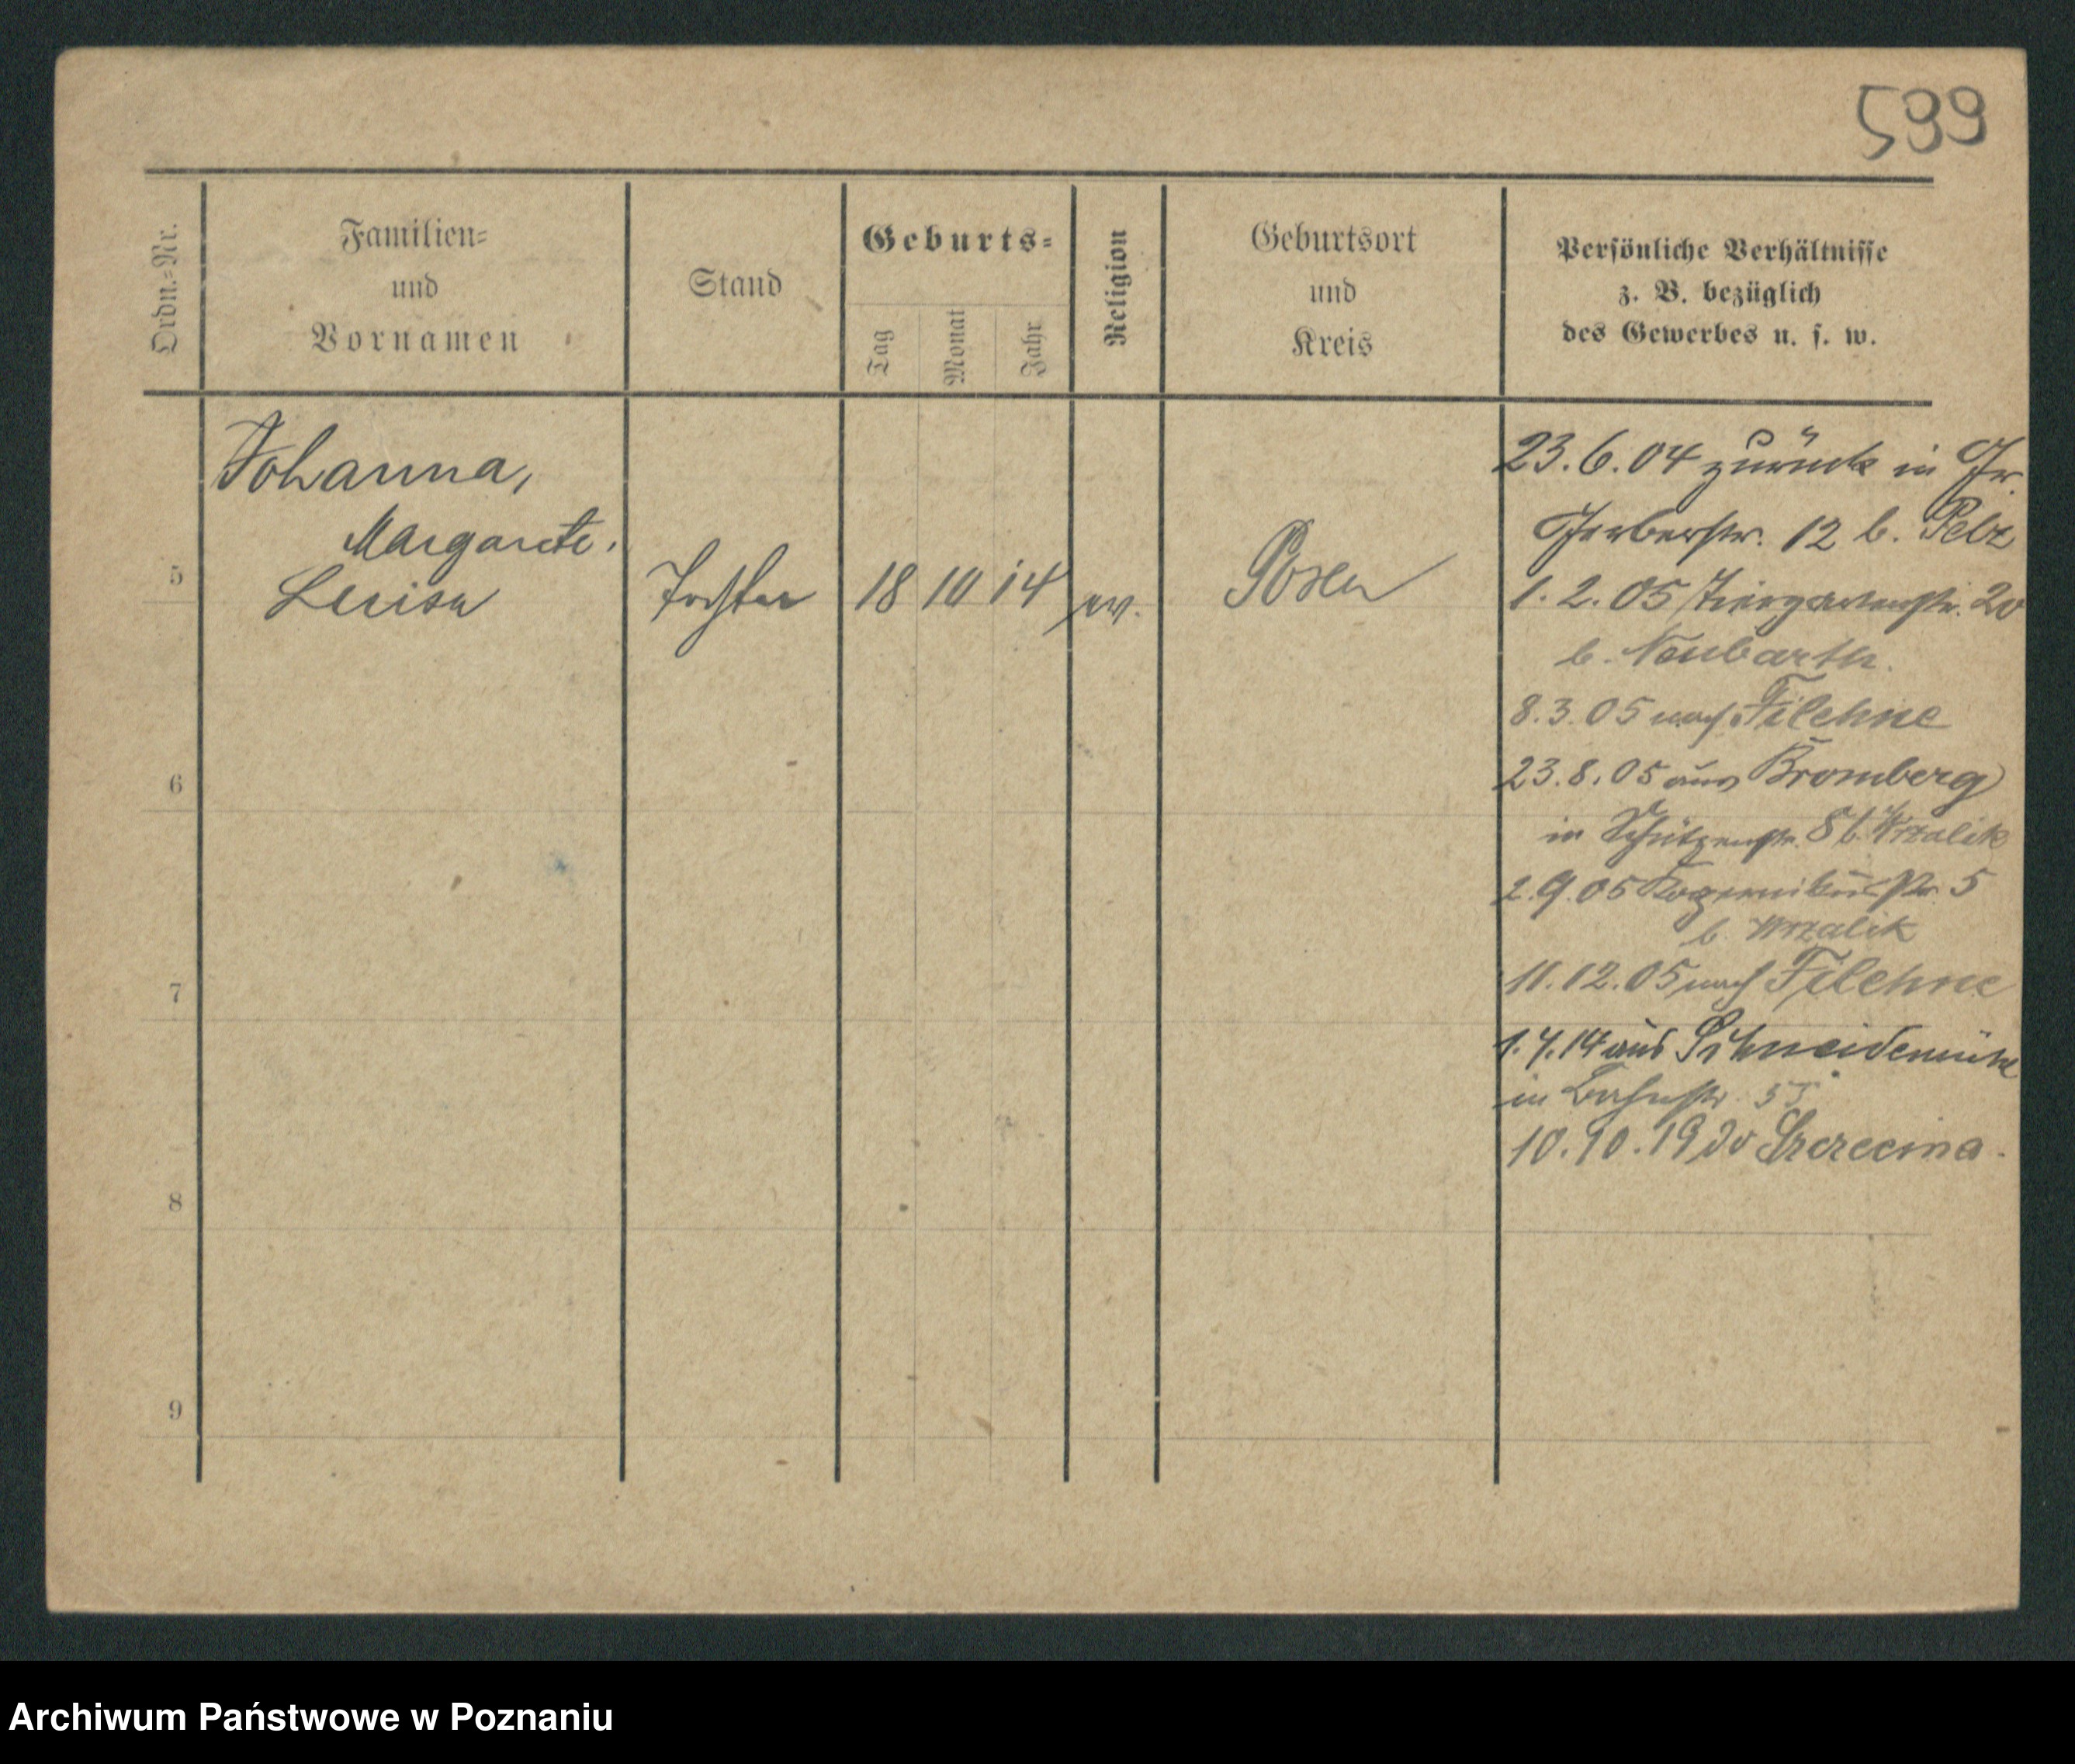 599
Ordn.-Nr.
Familien-
und
Vornamen
Stand
Geburts-
Tag
Monat
Jahr
Religion
Geburtsort
und
Kreis
Persönliche Verhältnisse
z. B. bezüglich
des Gewerbes u. s. w.
Johanna,
Margarete.
5 Luise Tochter 18 10 14 ev. Posen
6
7
8
9
23.6.04 zurück in Gr.
Gerberstr. 12 b. Pelz
1.2.05 Tiergartenstr. 20
b. Neubarth.
8.3.05 nach Filehne
23.8.05 aus Bromberg
in Schützenstr. 8 b. Wrzalik
2.9.05 Kopernikusstr. 5
b. Wrzalik
11.12.05 nach Filehne
1.7.14 aus Schneidemühl
in Bahnstr.
10.10.19 do Szczecina.
Archiwum Państwowe w Poznaniu